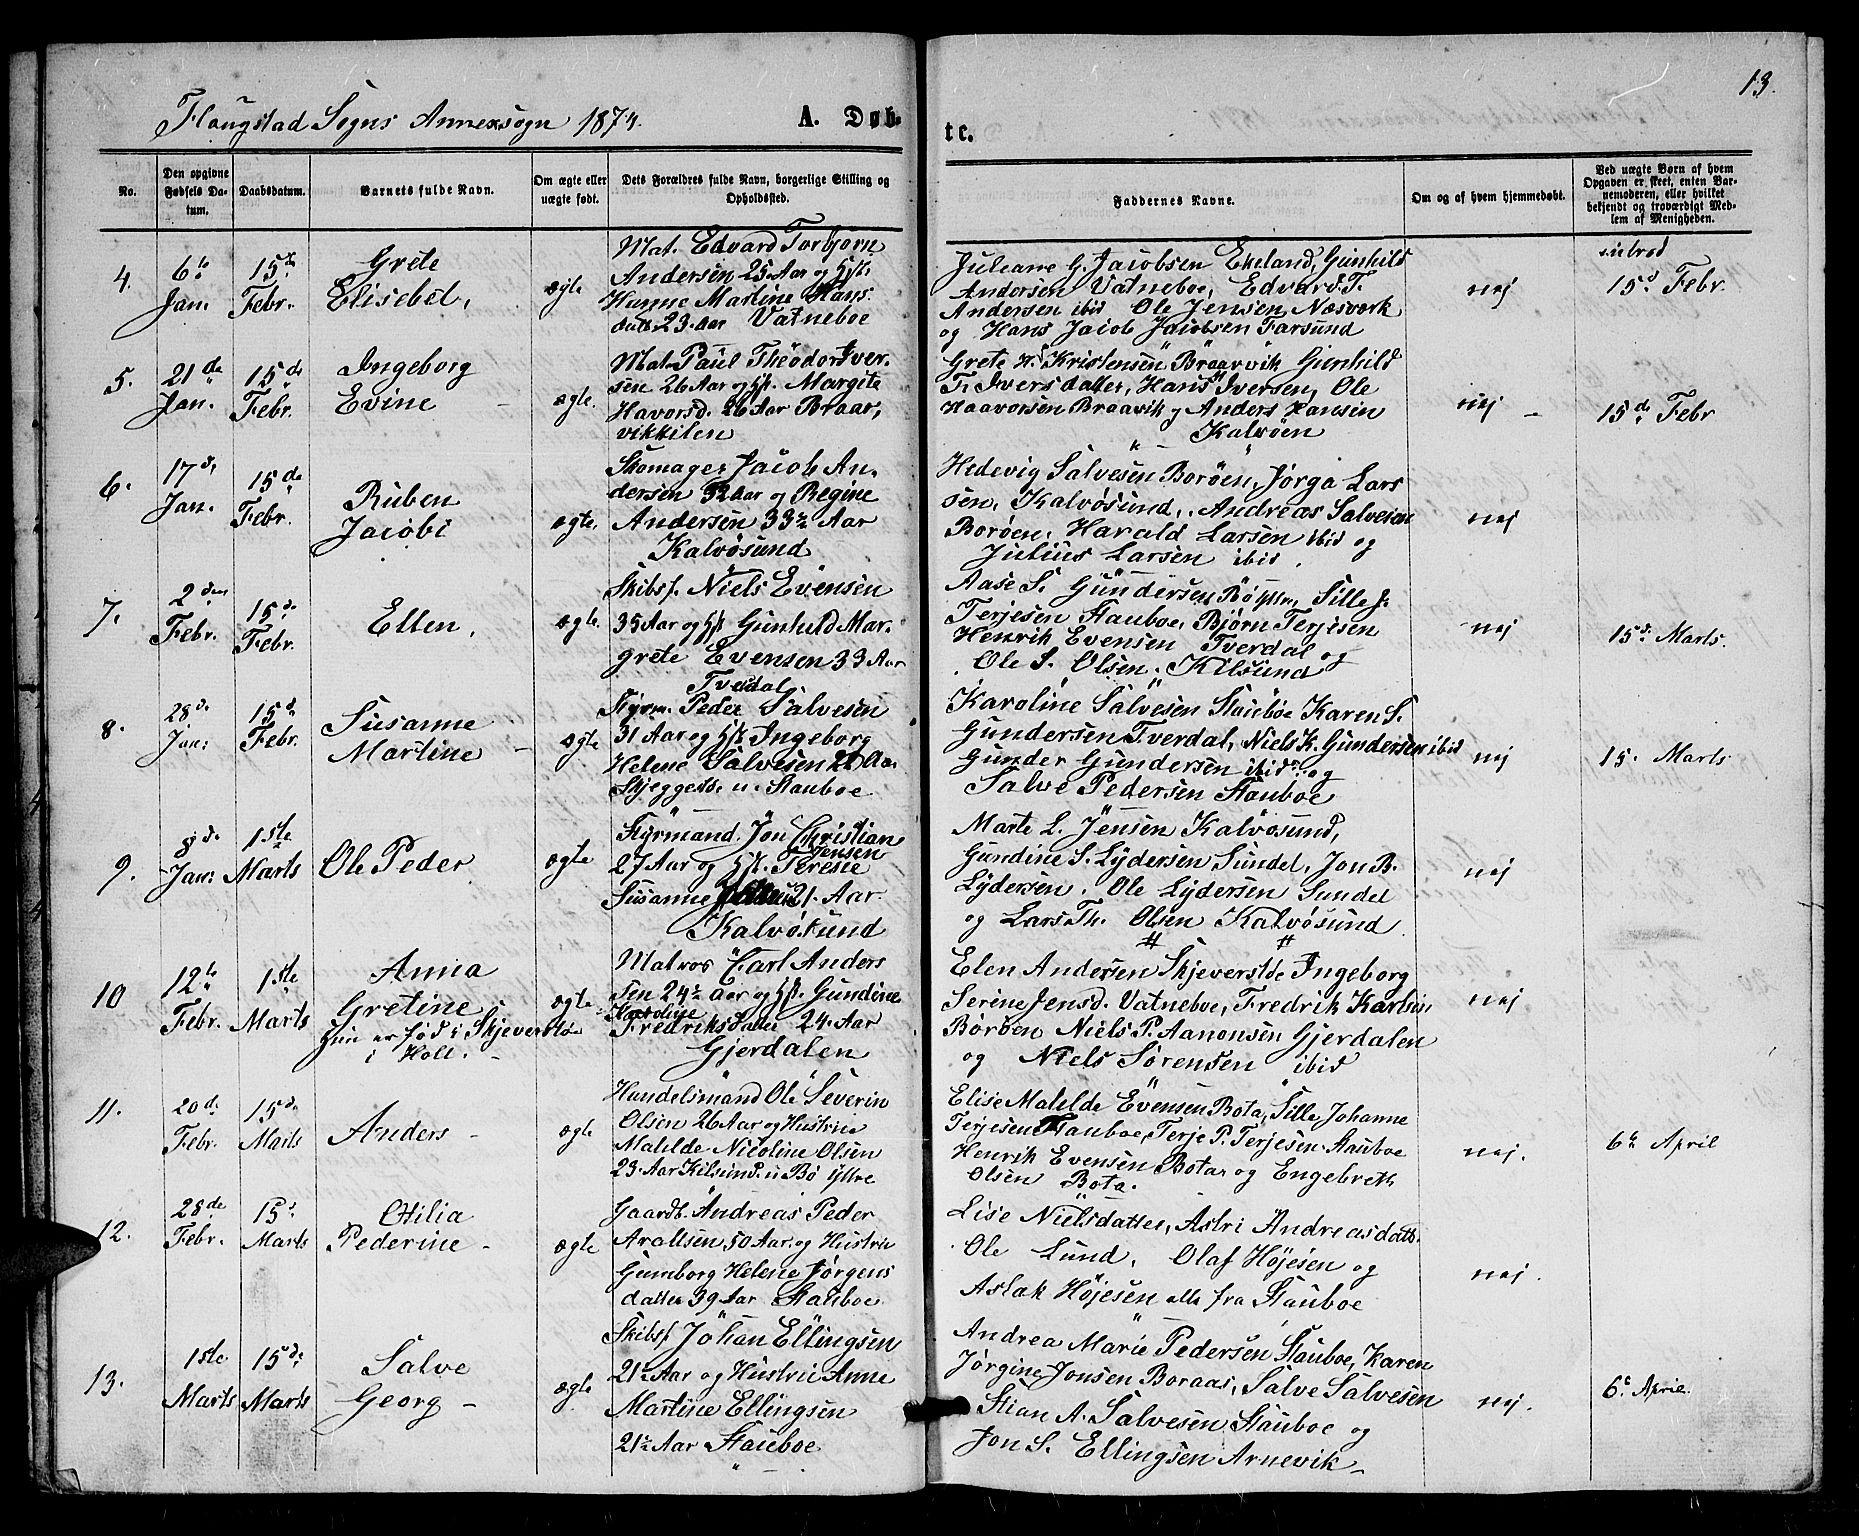 13.
Flaugstad Sogns Annexsogn 1874. A. Døb-
te.
No.
Den opgivne Fødsels Da-tum.
Daabsdatum.
Barnets fulde Navn.
Om ægte eller uægte født.
Dets Forældres fulde Navn, borgerlige Stilling og Opholdssted.
Faddernes Navne.
Om og af hvem hjemmedøbt.
Ved uægte Børn af hvem Opgaven er skeet, enten Bar-nemoderen, eller hvilket bekjendt og troværdigt Med-lem af Menigheden.
4.
6te Jan.
15de Febr.
Grete
Elisebet,
ægte
Mat. Edvard Torbjørn
Andersen 25 Aar og Hst.
Hanne Martine Hans
datt. 23 Aar Vatneboe
Juliane G. Jacobsen Ekeland, Gunhild
Andersen Vatneboe, Edvard T.
Andersen ibid Ole Jensen, Næsverk
og Hans Jacob Jacobsen Farsund
nej
introd
15d Febr.
5.
21de Jan.
15de Febr.
Ingeborg
Evine
ægte.
Mat. Paul Theodor Iver-
sen 26 Aar og Hst. Margite
Havorsd. 26 Aar Braar,
vikkilen
Grete H. Kristensen Braarvik Gunhild
T. Iversdatter, Hans Iversen, Ole
Haavorsen Braavik og Anders Hansen
Kalvøen
nej
15de Febr
6.
17de Jan.
15de Febr.
Ruben
Jacobi
ægte.
Skomager Jacob An-
dersen 32 Aar og Regine
Andersen 33½ Aar
Kalvøsund
Hedevig Salvesen Borøen, Jørga Lars
sen, Kalvøsund, Andreas Salvesen
Borøen, Harald Larsen ibid og
Julius Larsen ibid.
nej
7.
2den Febr.
15de Febr.
Ellen,
ægte.
Skibsf. Niels Evensen
35 Aar og Hst Gunhild Mar-
grete Evensen 33 Aar
Tverdal
Aase S. Gundersen Bø Yttre, Sille J.
Terjesen Stauboe, Bjørn Terjesen
Henrik Evensen Tverdal og
Ole S. Olsen. Kilsund
nej
15de Marts.
8.
28de Jan:
15de Febr.
Susanne
Martine
ægte
Styrm. Peder Salvesen
31 Aar og Hst Ingeborg
Helene Salvesen 22 Aar
Skjeggestø u. Stauboe
Karoline Salvesen Stauboe Karen S.
Gundersen Tverdal, Niels K. Gundersen ibid
Gunder Gundersen ibid og
Salve Pedersen Stauboe
nej
15. Marts
9.
8de Jan:
1ste Marts
Ole Peder
ægte
Styrmand. Jon Christian
Jensen
27 Aar og Hst. Teresie
Susanne 21. Aar.
Kalvøsund
Marte L. Jensen Kalvøsund,
Gundine S. Lydersen Sundel, Jon B.
Lydersen. Ole Lydersen Sundel
og Lars Th. Olsen Kalvøsund
nej
10
12te Febr.
1ste Marts
Anna
Gretine
Hun er fød i Skjeverstø
i Holt.
ægte
Matros Carl Anders
sen 24½ Aar og Hst. Gundine
Karoline
Fredriksdatter 24. Aar
Gjerdalen
Elen Andersen Skjeverstø Ingeborg
Serine Jensd. Vatneboe, Fredrik Karlsen
Borøen Niels P. Aanonsen Gjerdalen
og Niels Sørensen ibid
nej
11.
20de Febr.
15de Marts
Anders
ægte
Handelsmand Ole Severin
Olsen 26 Aar og Hustrue
Matilde Nicoline Olsen
23 Aar Kilsund u. Bø Yttre
Elise Matilde Evensen Bota, Sille Johanne
Terjesen Stauboe, Terje P. Terjesen Stauboe
Henrik Evensen Bota og Engebreth
Olsen Bota.
nej.
6te April
12.
28de Febr.
15d Marts
Otilia
Pederine
ægte
Gaardb. Andreas Peder
Aroltsen 50 Aar og Hustru
Gumborg Helene Jørgens
datter 39 Aar Stauboe
Lise Nielsdatter, Astri Andreasdatt.
Ole Lund, Olaf Højesen og
Aslak Højesen alle fra Stauboe
nej.
13.
1ste Marts
15de Marts
Salve
Georg
ægte
Skibsf Johan Ellingsen
21½ Aar og Hustrue Anne
Martine Ellingsen
21½ Aar Stauboe
Andrea Marie Pedersen Stauboe, Karen
Jørgine Jonsen Boraas, Salve Salvesen
Stian A. Salvesen Stauboe og
Jon S. Ellingsen Arnevik
nej.
6te April.